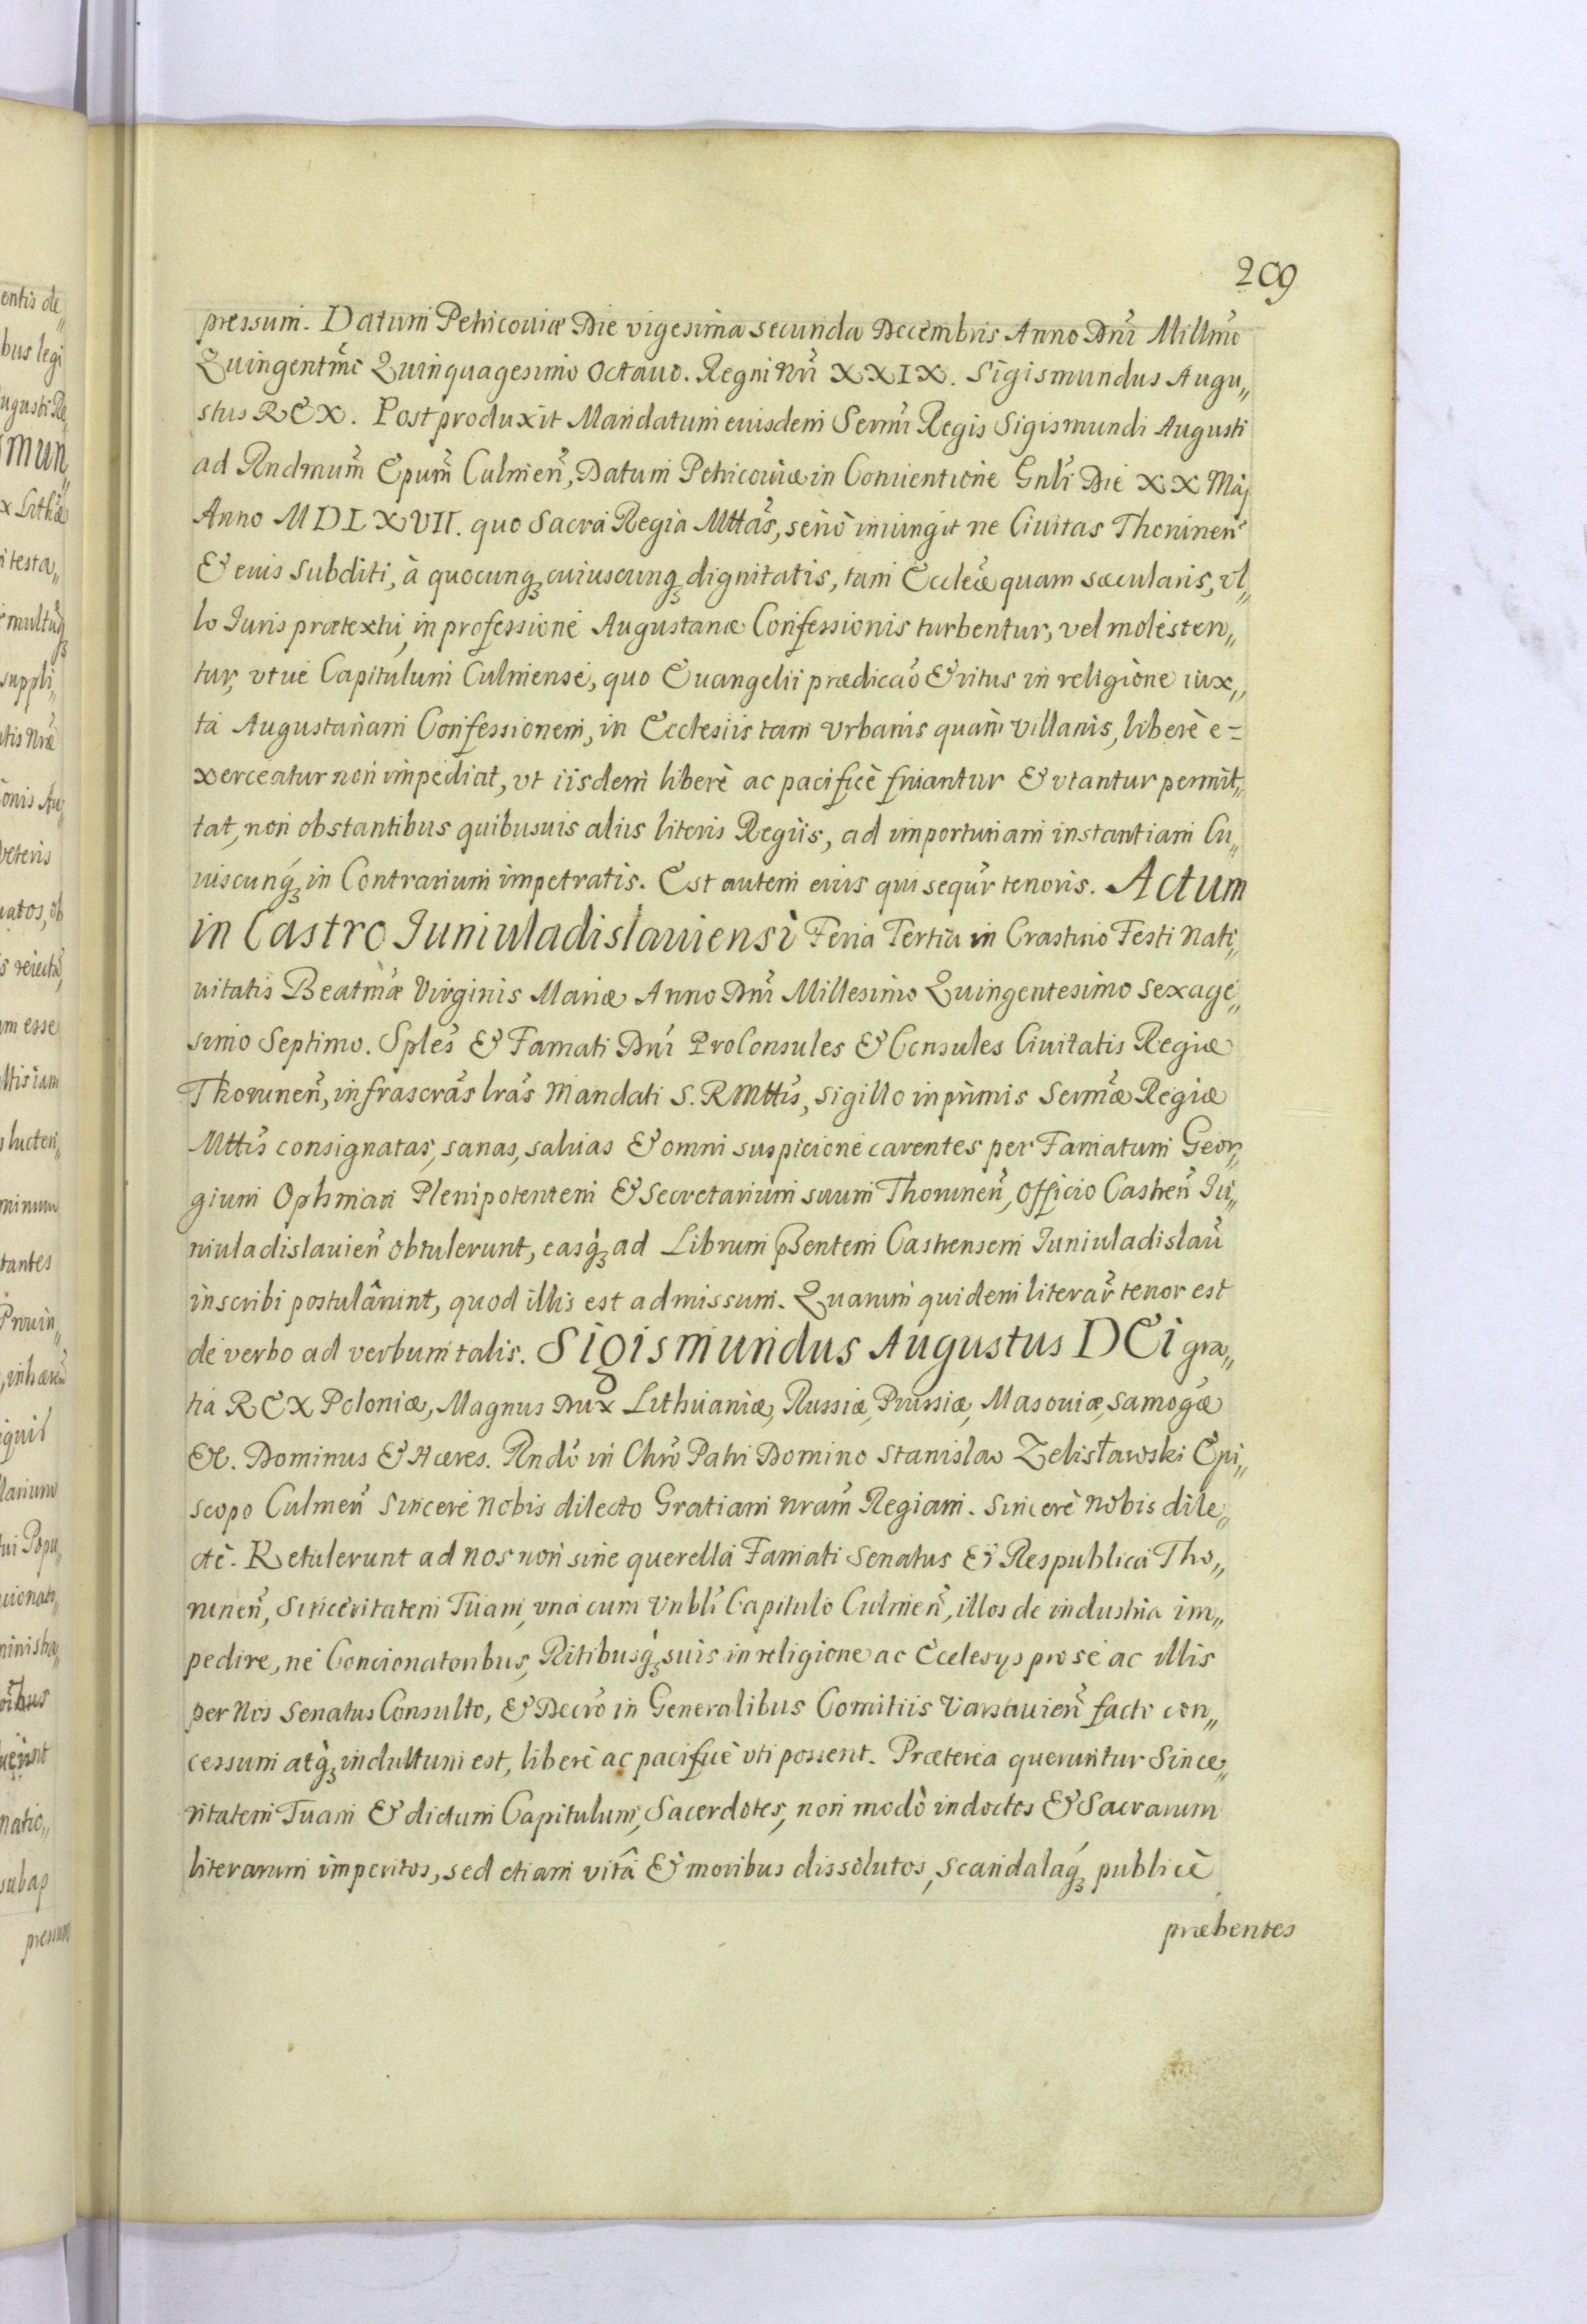 209
pressum. Datum Petricouiæ Die vigesima secunda Decembris Anno Dnĩ Millmõ
Quingentmõ Quinquagesimo Octauo. Regni nrĩ XXIX. Sigismundus Augu„
stus REX. Post produxit Mandatum eiusdem Sermĩ Regis Sigismundi Augusti
ad Rndmum̃ Epum̃ Culmeñ, Datum Petricouiæ in Conuentione Gnlĩ Die XX Maij
Anno MDLXVII. quo Sacra Regia Mttãs, seriò iniungit ne Ciuitas Thoruneñ
& eius subditi, à quocunqꝫ cuiuscunqꝫ dignitatis, tam Eccleæ̃ quam sæcularis, vl„
lo Iuris prætextu, in professione Augustanæ Confessionis turbentur, vel molesten„
tur, vtue Capitulum Culmense, quo Euangelii prædicaõ & ritus in religione iux„
ta Augustanam Confessionem, in Ecclesiis tam vrbanis quam villanis, liberè e=
xerceatur non impediat, vt iisdem liberè ac pacificè fruantur & vtantur permit„
tat, non obstantibus quibusuis aliis literis Regiis, ad importunam instantiam Cu„
iuscunqꝫ in Contrarium impetratis. Est autem eius qui sequr̃ tenoris. Actum
in Castro Iuniuladislauiensi Feria Tertia in Crastino Festi Nati„
uitatis Beatmæ̃ Virginis Mariæ Anno Dnĩ Millesimo Quingentesimo Sexage„
simo Septimo. Splẽs & Famati Dnĩ ProConsules & Consules Ciuitatis Regiæ
Thoruneñ, infrascrãs lrãs Mandati S. R Mttĩs, sigillo inprimis Sermæ̃ Regiæ
Mttĩs consignatas, sanas, saluas & omni suspicione carentes per Famatum Geor„
gium Ophman Plenipotentem & Secretarium suum Thoruneñ, Officio Castreñ Iu„
niuladislauieñ obtulerunt, easqꝫ ad Librum pꝫentem Castrensem Iuniuladislaũ
inscribi postulârunt, quod illis est admissum. Quarum quidem literar̃ tenor est
de verbo ad verbum talis. Sigismundus Augustus DEi gra„
tia REX Poloniæ, Magnus Dux Lithuaniæ, Russiæ, Prussiæ, Masouiæ, Samogæ̃
Et. Dominus & Hæres. Rndõ in Chrõ Patri Domino Stanislao Zelisławski Epi„
scopo Culmeñ Sincere nobis dilecto Gratiam nram̃ Regiam. Sincerè nobis dile„
cte. Retulerunt ad nos non sine querella Famati Senatus & Respublica Tho„
runeñ, Sinceritatem Tuam, vna cum Vnblĩ Capitulo Culmeñ, illos de industria im„
pedire, ne Concionatoribus, Ritibusqꝫ suis in religione ac Ecclesijs pro se ac illis
per Nos Senatus Consulto, & Decrõ in Generalibus Comitiis Varsauieñ facto con„
cessum atqꝫ indultum est, liberè ac pacificè vti possent. Præterea queruntur Since„
ritatem Tuam & dictum Capitulum, Sacerdotes, non modò indoctos & Sacrarum
literarum imperitos, sed etiam vitâ & moribus dissolutos, scandalaqꝫ publicè
præbentes